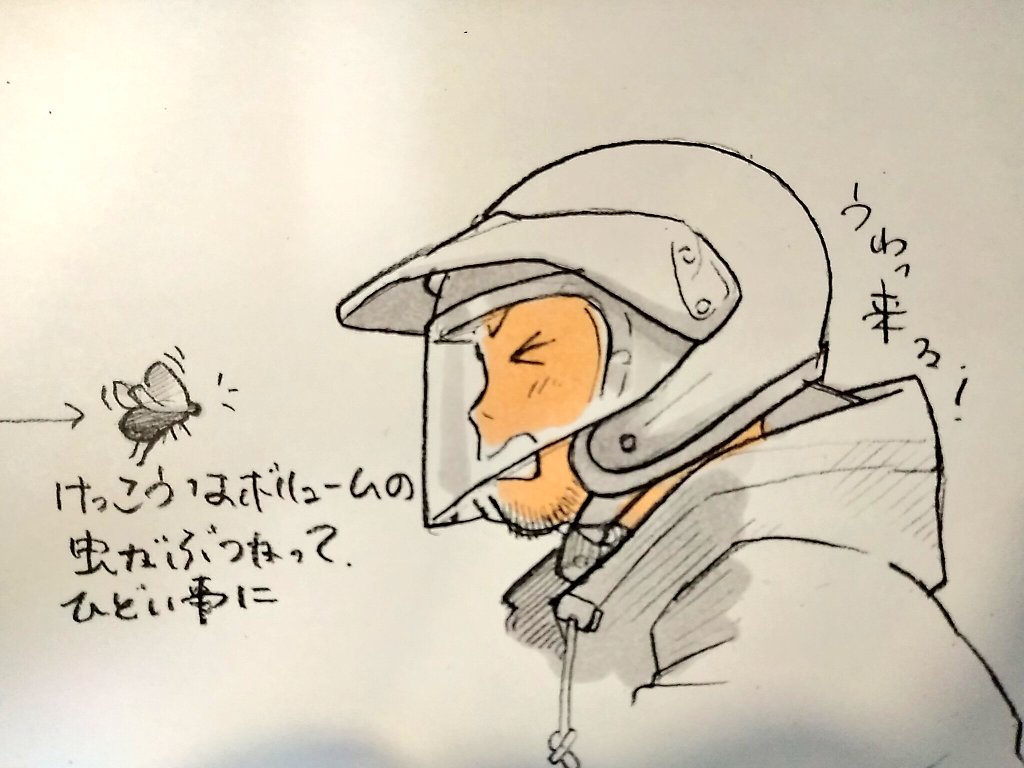 うわっ来る!
けっこうなボリュームの
虫がぶつかって
ひどい事に